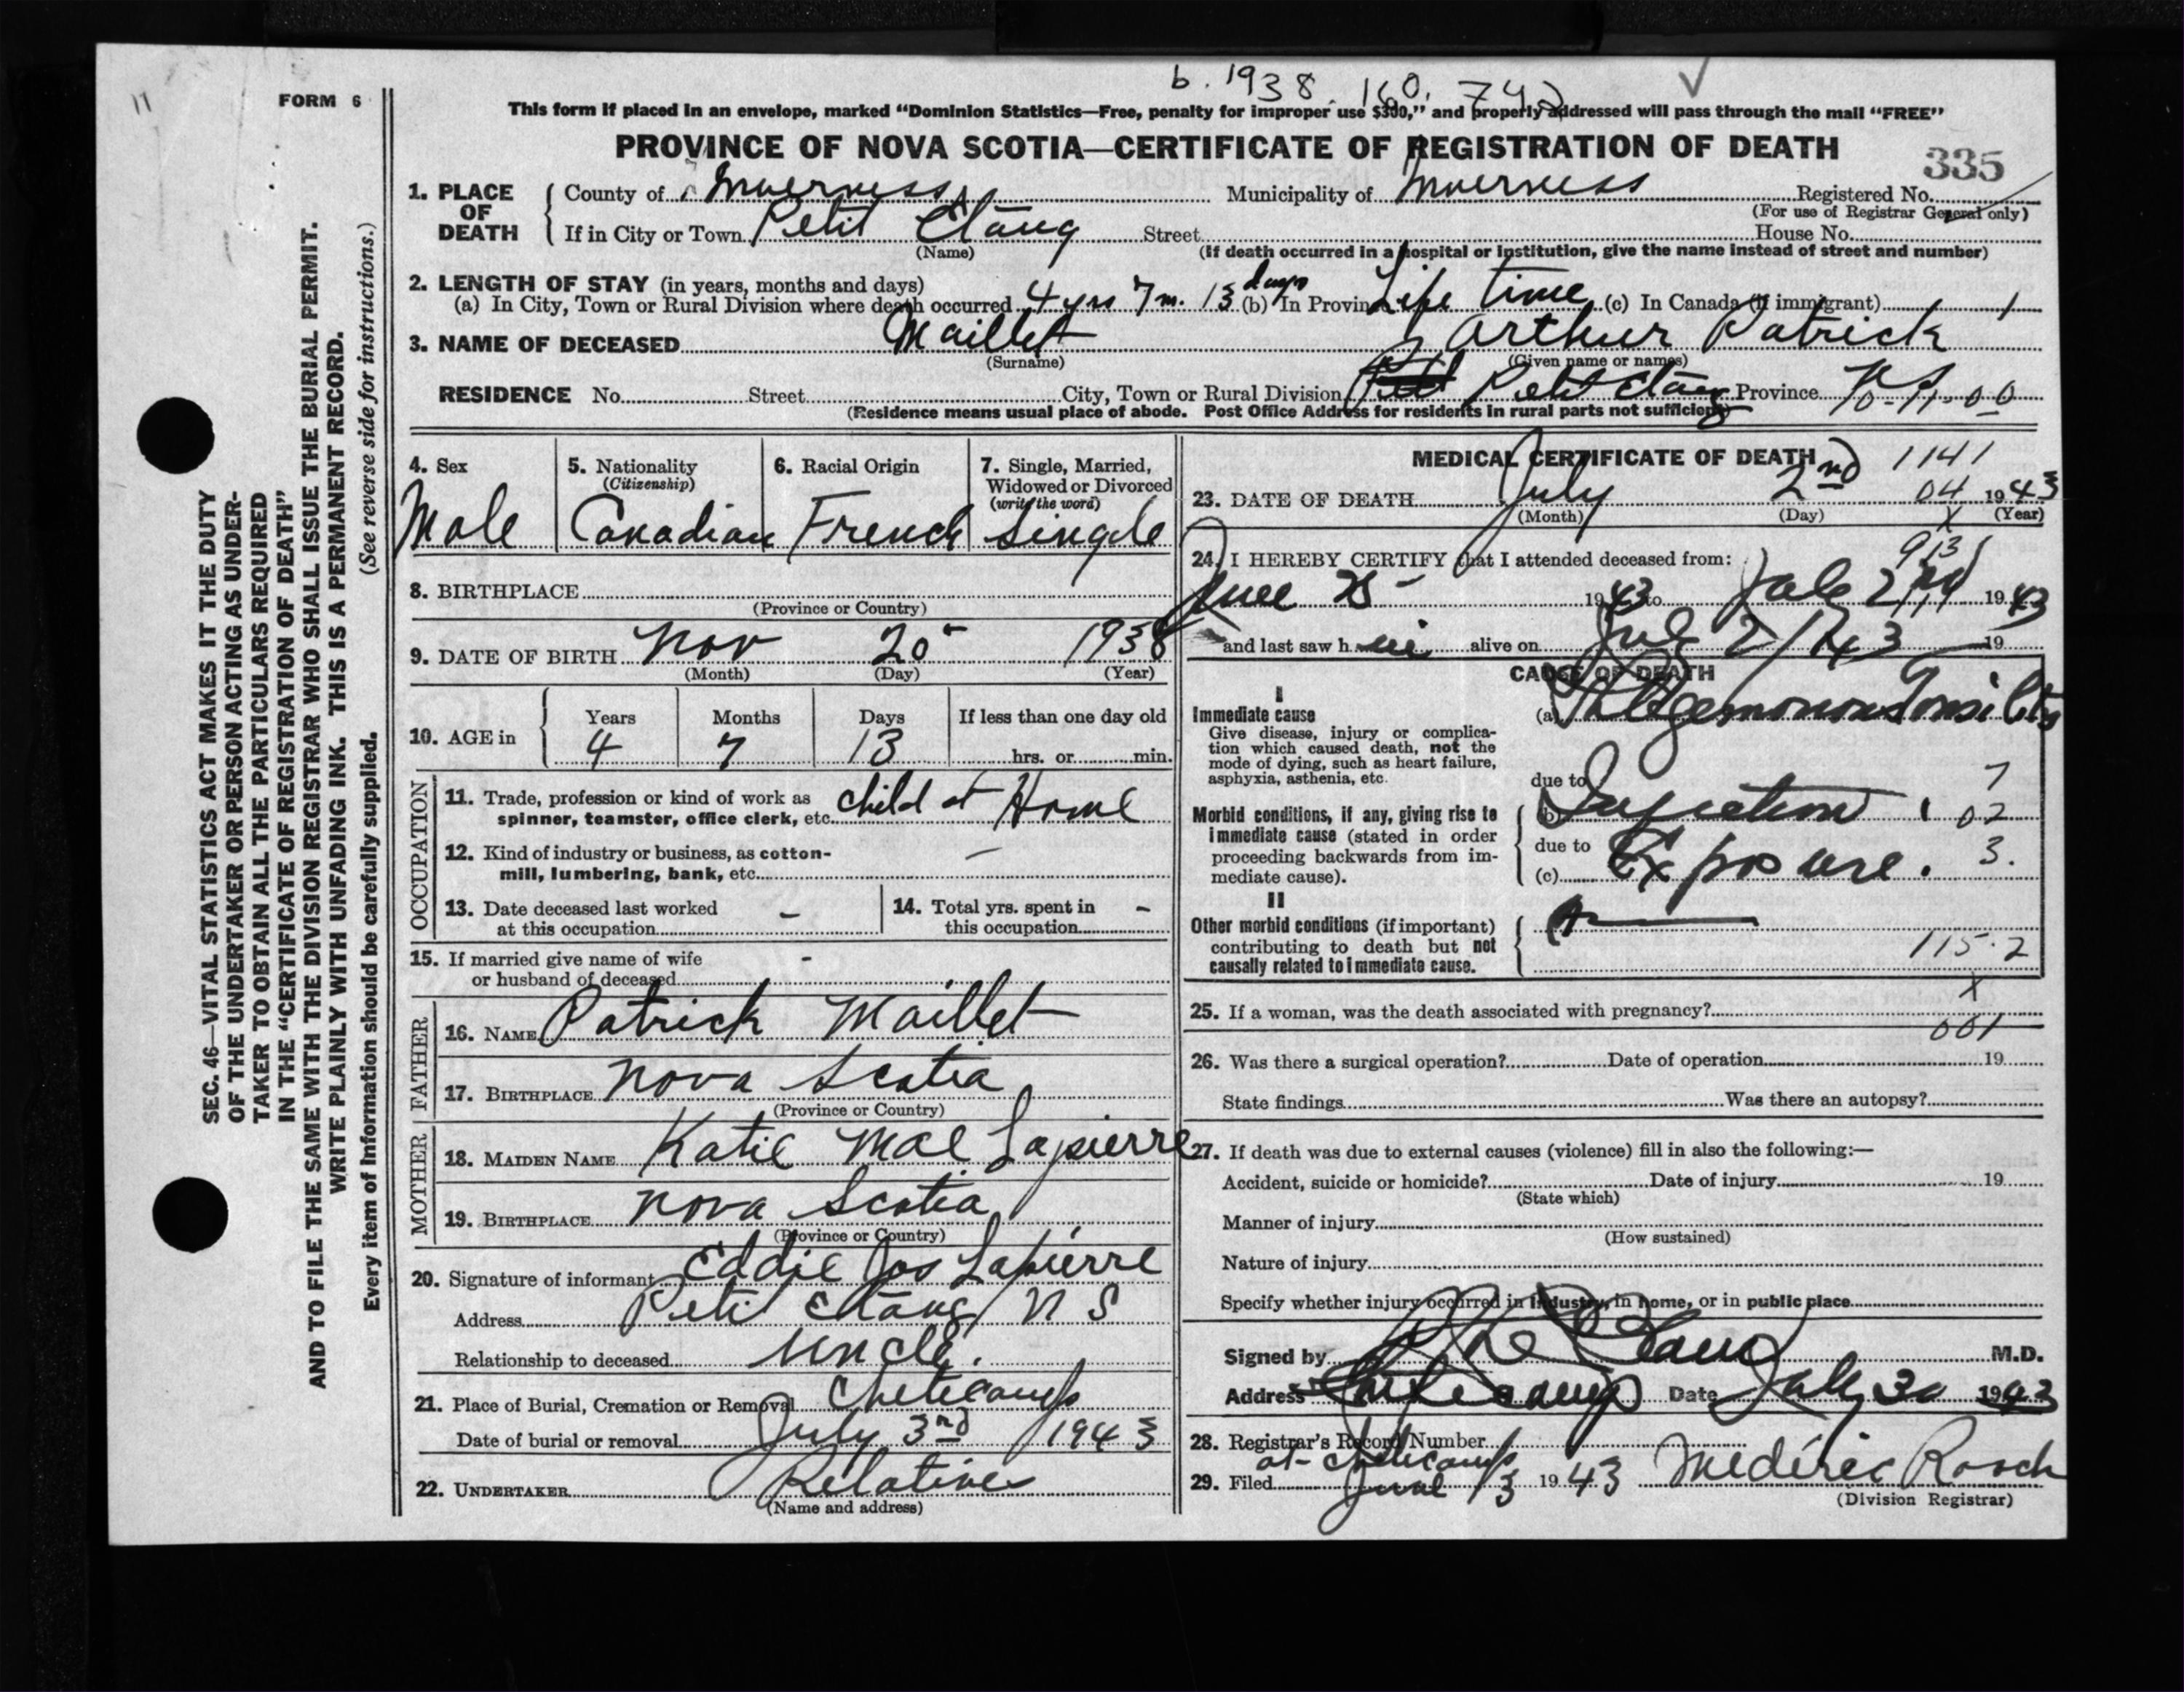 11
FORM 6
b. 1938. 160. 742
This form if placed in an envelope, marked “Dominion Statistics—Free, penalty for improper use $300,” and properly addressed will pass through the mail “FREE”
PROVINCE OF NOVA SCOTIA—CERTIFICATE OF REGISTRATION OF DEATH
335
1. PLACE OF DEATH
County of Inverness Municipality of Inverness Registered No.
(For use of Registrar General only)
If in City or Town Petit Etang Street House No.
(Name) (If death occurred in a hospital or institution, give the name instead of street and number)
2. LENGTH OF STAY (in years, months and days)
(a) In City, Town or Rural Division where death occurred 4 yrs 7 m. 13 days (b) In Province Life time (c) In Canada (if immigrant)
3. NAME OF DECEASED Maillet Arthur Patrick
(Surname) (Given name or names)
RESIDENCE No. Street City, Town or Rural Division Petit Etang Province N S
10-11-00
(Residence means usual place of abode. Post Office Address for residents in rural parts not sufficient)
4. Sex
Male
5. Nationality
(Citizenship)
Canadian
6. Racial Origin
French
7. Single, Married,
Widowed or Divorced
(write the word)
Single
8. BIRTHPLACE
(Province or Country)
9. DATE OF BIRTH Nov 20 1938
(Month) (Day) (Year)
10. AGE in
Years Months Days If less than one day old
4 7 13 hrs. or min.
OCCUPATION
11. Trade, profession or kind of work as
spinner, teamster, office clerk, etc. child at Home
12. Kind of industry or business, as cotton-
mill, lumbering, bank, etc. –
13. Date deceased last worked
at this occupation –
14. Total yrs. spent in
this occupation –
15. If married give name of wife
or husband of deceased -
FATHER
16. NAME Patrick Maillet
17. BIRTHPLACE Nova Scotia
(Province or Country)
MOTHER
18. MAIDEN NAME Katie Mae Lapierre
19. BIRTHPLACE Nova Scotia
(Province or Country)
20. Signature of informant Eddie Jos Lapierre
Address Petit Etang N S
Relationship to deceased uncle.
21. Place of Burial, Cremation or Removal Cheticamp
Date of burial or removal July 3rd 1943
22. UNDERTAKER Relatives
(Name and address)
MEDICAL CERTIFICATE OF DEATH
1141
23. DATE OF DEATH July 2nd 04 1943
(Month) (Day) (Year)
24. I HEREBY CERTIFY that I attended deceased from:
913
June 25 1943 to July 2nd 1943
and last saw h im alive on July 2/43 19
CAUSE OF DEATH
I
Immediate cause
Give disease, injury or complica-
tion which caused death, not the
mode of dying, such as heart failure,
asphyxia, asthenia, etc.
(a) Phlegmonous Tonsilitis
due to
7
Morbid conditions, if any, giving rise to
immediate cause (stated in order
proceeding backwards from im-
mediate cause).
(b) Infection 02
due to
(c) Exposure. 3.
II
Other morbid conditions (if important)
contributing to death but not
causally related to immediate cause.
115.2
x
25. If a woman, was the death associated with pregnancy?
001
26. Was there a surgical operation? Date of operation 19
State findings Was there an autopsy?
27. If death was due to external causes (violence) fill in also the following:—
Accident, suicide or homicide? Date of injury 19
(State which)
Manner of injury
(How sustained)
Nature of injury
Specify whether injury occurred in industry, in home, or in public place
Signed by M.D.
Address Cheticamp Date July 30 1943
28. Registrar's Record Number
at Cheticamp
29. Filed 19 43 Mederic Roach
(Division Registrar)
SEC. 46—VITAL STATISTICS ACT MAKES IT THE DUTY
OF THE UNDERTAKER OR PERSON ACTING AS UNDER-
TAKER TO OBTAIN ALL THE PARTICULARS REQUIRED
IN THE “CERTIFICATE OF REGISTRATION OF DEATH”
AND TO FILE THE SAME WITH THE DIVISION REGISTRAR WHO SHALL ISSUE THE BURIAL PERMIT.
WRITE PLAINLY WITH UNFADING INK. THIS IS A PERMANENT RECORD.
Every item of information should be carefully supplied. (See reverse side for instructions.)